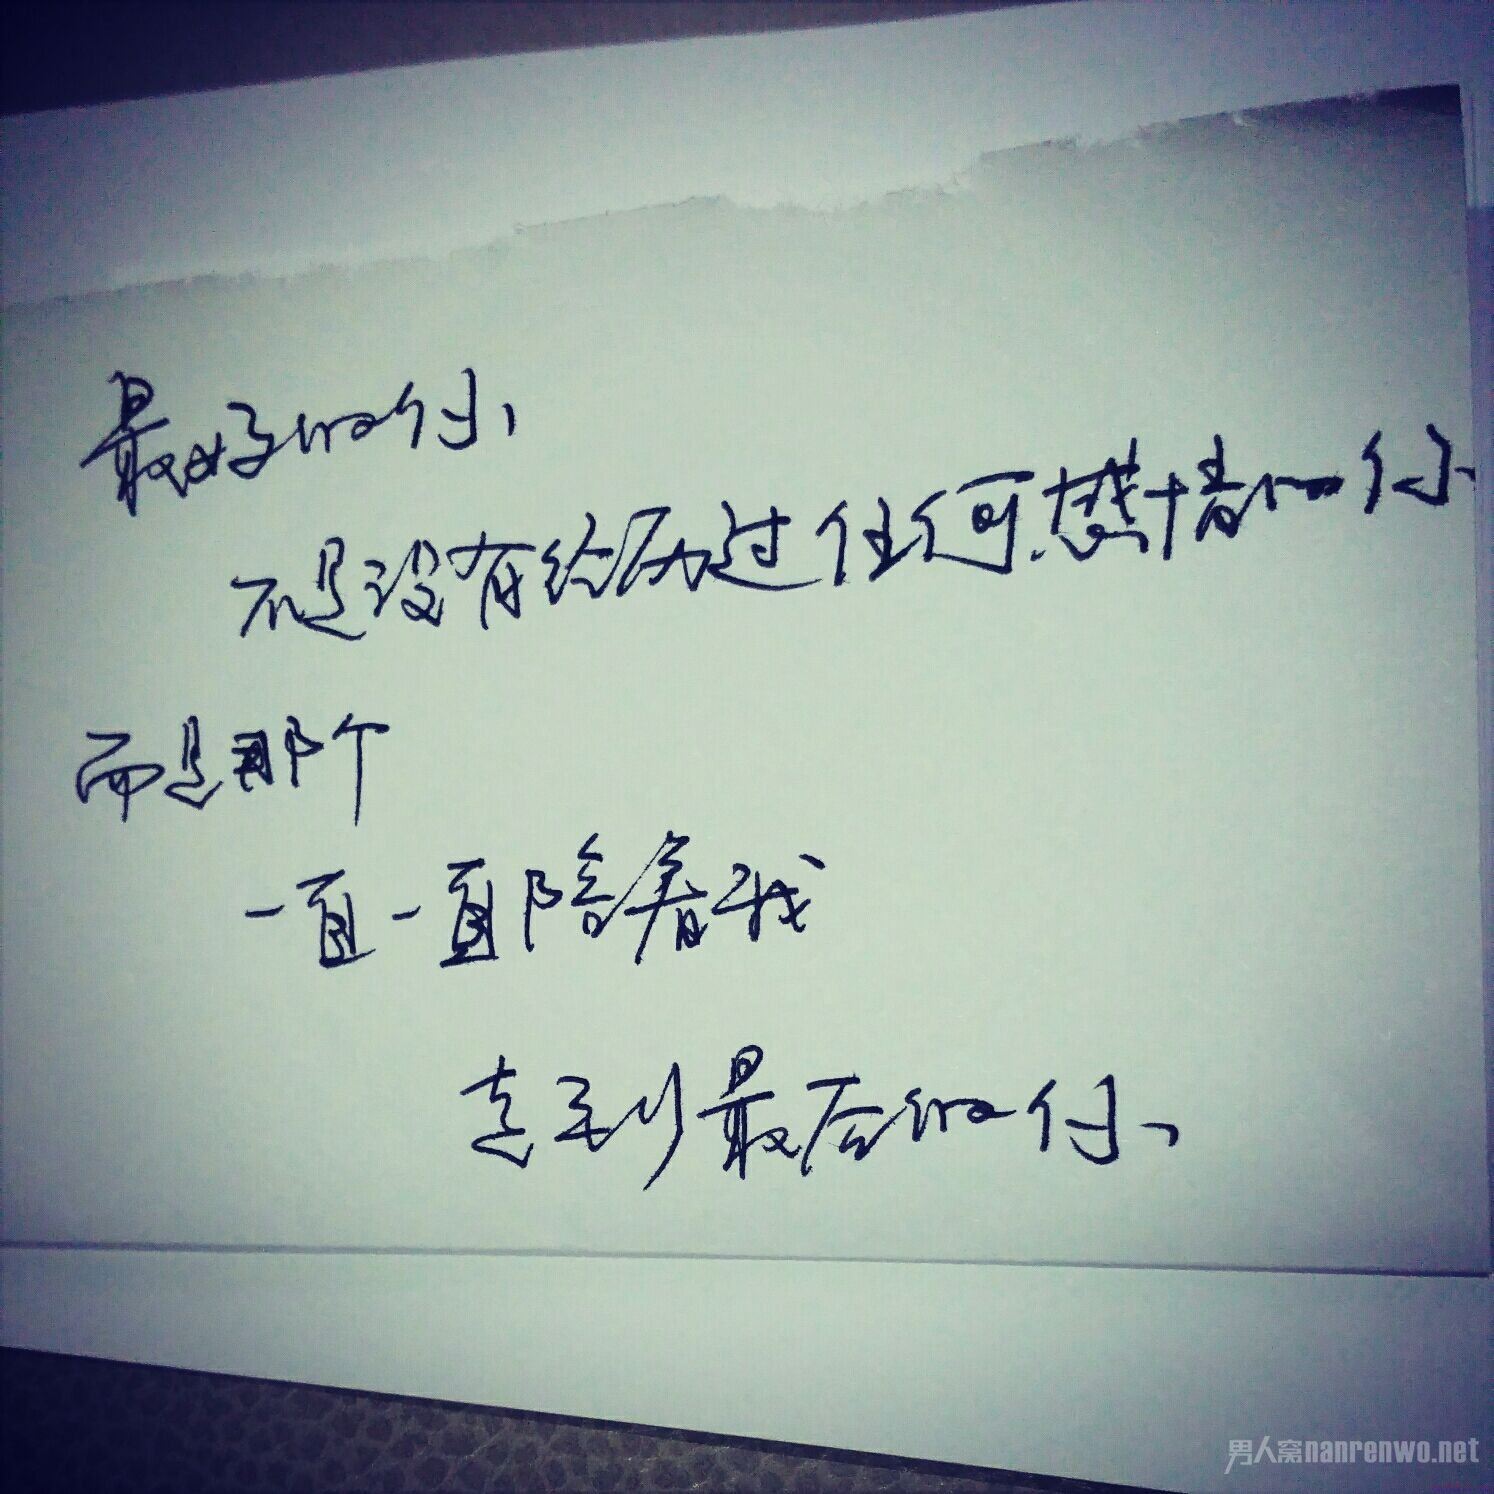 最好的你、
不是没有经历过任何感情的你
而是那个
一直一直陪着我
走到最后的你、
男人窝nanrenwo.net